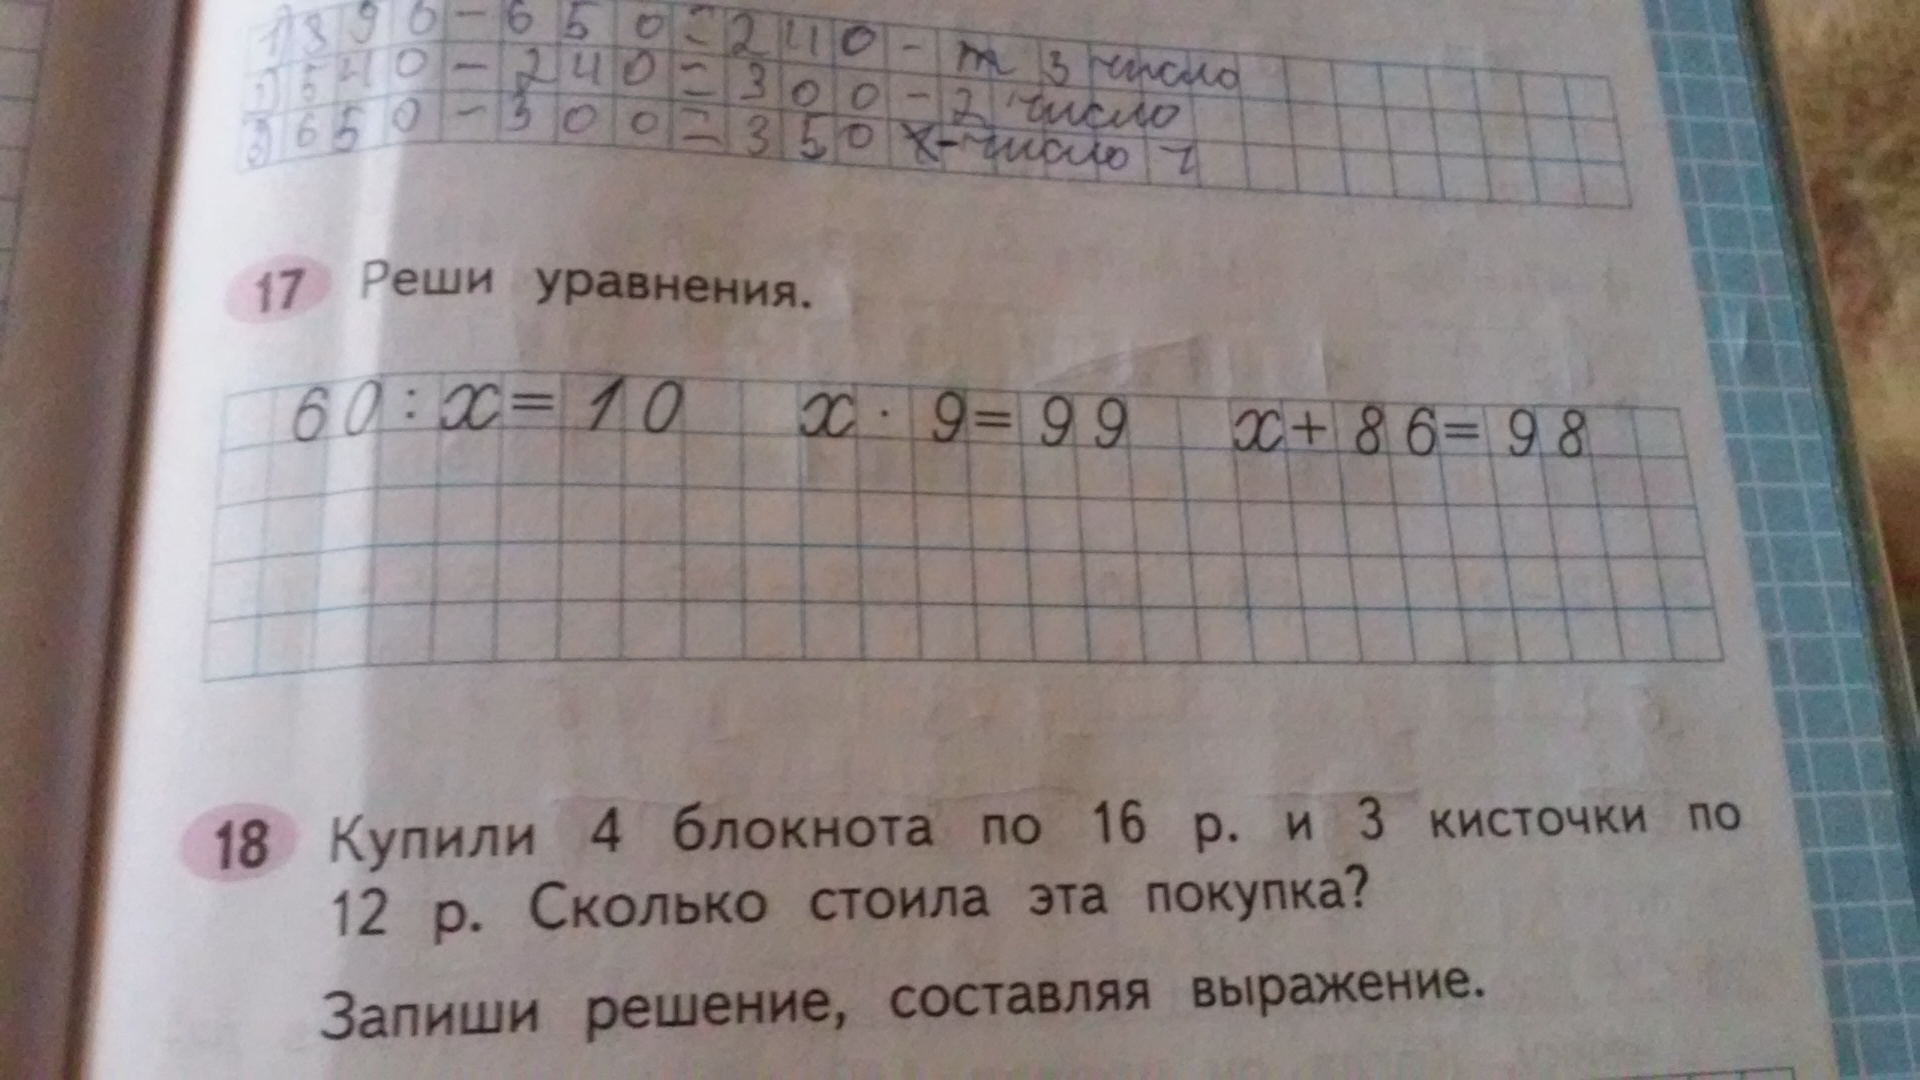 1) 8 9 6 - 6 5 0 = 2 4 0 - 3 число
2) 5 4 0 - 2 4 0 = 3 0 0 - 2 число
3) 6 5 0 - 3 0 0 = 3 5 0 - число 1
17 Реши уравнения.
60 : x = 10 x · 9 = 99 x + 86 = 98
18 Купили 4 блокнота по 16 р. и 3 кисточки по
12 р. Сколько стоила эта покупка?
Запиши решение, составляя выражение.